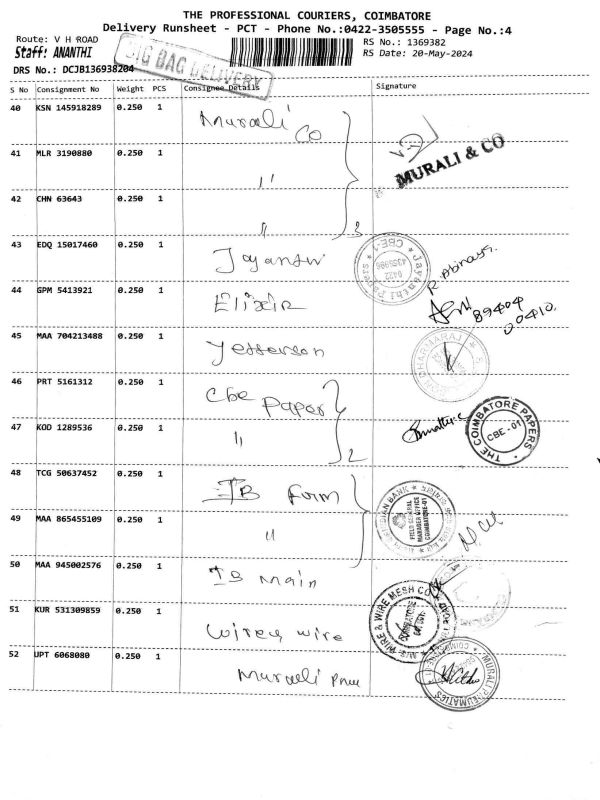 THE PROFESSIONAL COURIERS, COIMBATORE
Delivery Runsheet - PCT - Phone No.:0422-3505555 - Page No.:4
Route: V H ROAD
RS No.: 1369382
Staff: ANANTHI
RS Date: 20-May-2024
DRS No.: DCJB136938204
BIG BAG DELIVERY
S No Consignment No Weight PCS Consignee Details Signature
40 KSN 145918289 0.250 1 Murali Co
MURALI & CO
41 MLR 3190880 0.250 1 "
42 CHN 63643 0.250 1 " 3
43 EDQ 15017460 0.250 1
CBE-1
0422
44 GPM 5413921 0.250 1 Elixir
89404
00410
45 MAA 704213488 0.250 1 Jefferson
46 PRT 5161312 0.250 1 Cbe Paper
THE COIMBATORE PAPERS
CBE-01
47 KOD 1289536 0.250 1 " 2
48 TCG 50637452 0.250 1 IB form
INDIAN BANK
FIELD GENERAL
MANAGER OFFICE
COIMBATORE-01
49 MAA 865455109 0.250 1 "
50 MAA 945002576 0.250 1 IB main
51 KUR 531309859 0.250 1 wire
WIRE & WIRE MESH CO
COIMBATORE
52 UPT 6068080 0.250 1 Murali Pneu
MURALI PNEUMATICS